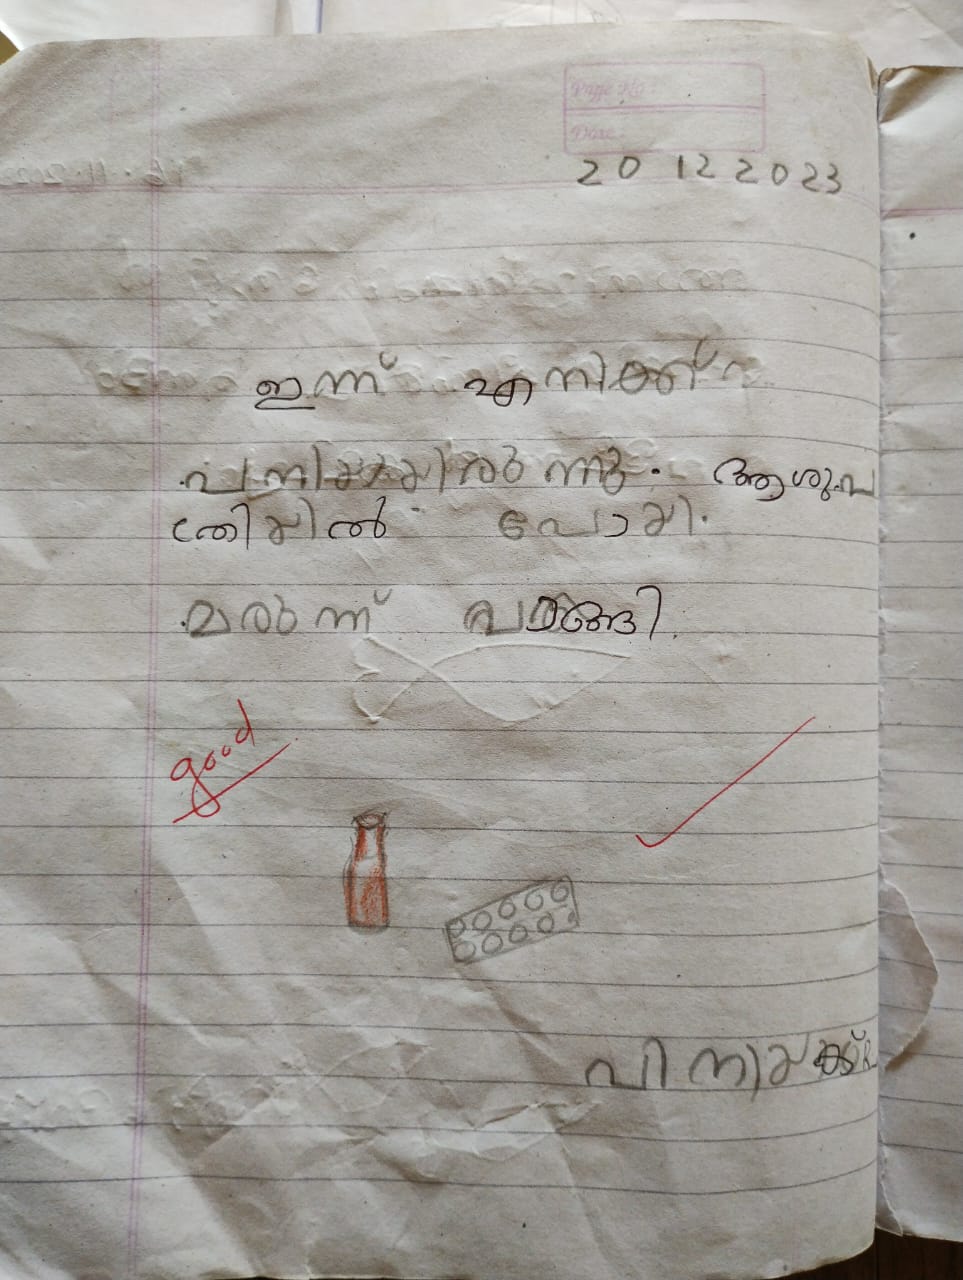 Page No:
Date:
20 12 2023
ഇന്ന് എനിക്ക്
പനിയായിരുന്നു. ആശുപ
ത്രിയിൽ പോയി.
മരുന്ന് വാങ്ങി.
good